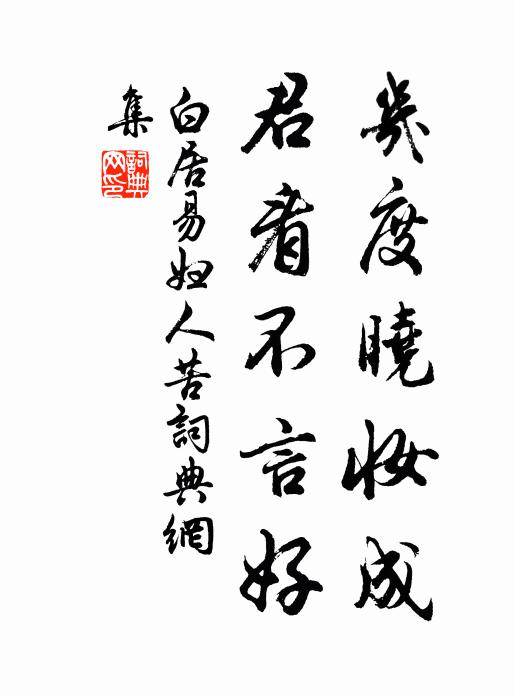 幾度曉妝成
君看不言好
白居易婦人苦詞典網
集
詞典網印